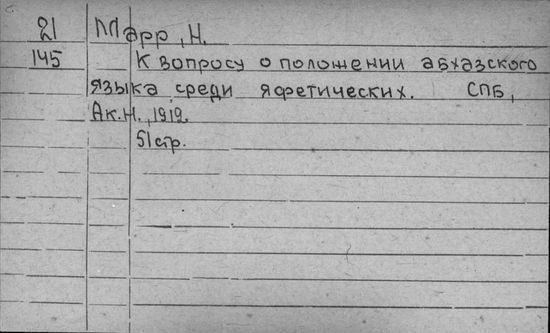 21 Марр, Н.
145 К вопросу о положении абхазского
языка среди яфетических. СПБ,
Ак.Н., 1912.
51 стр.